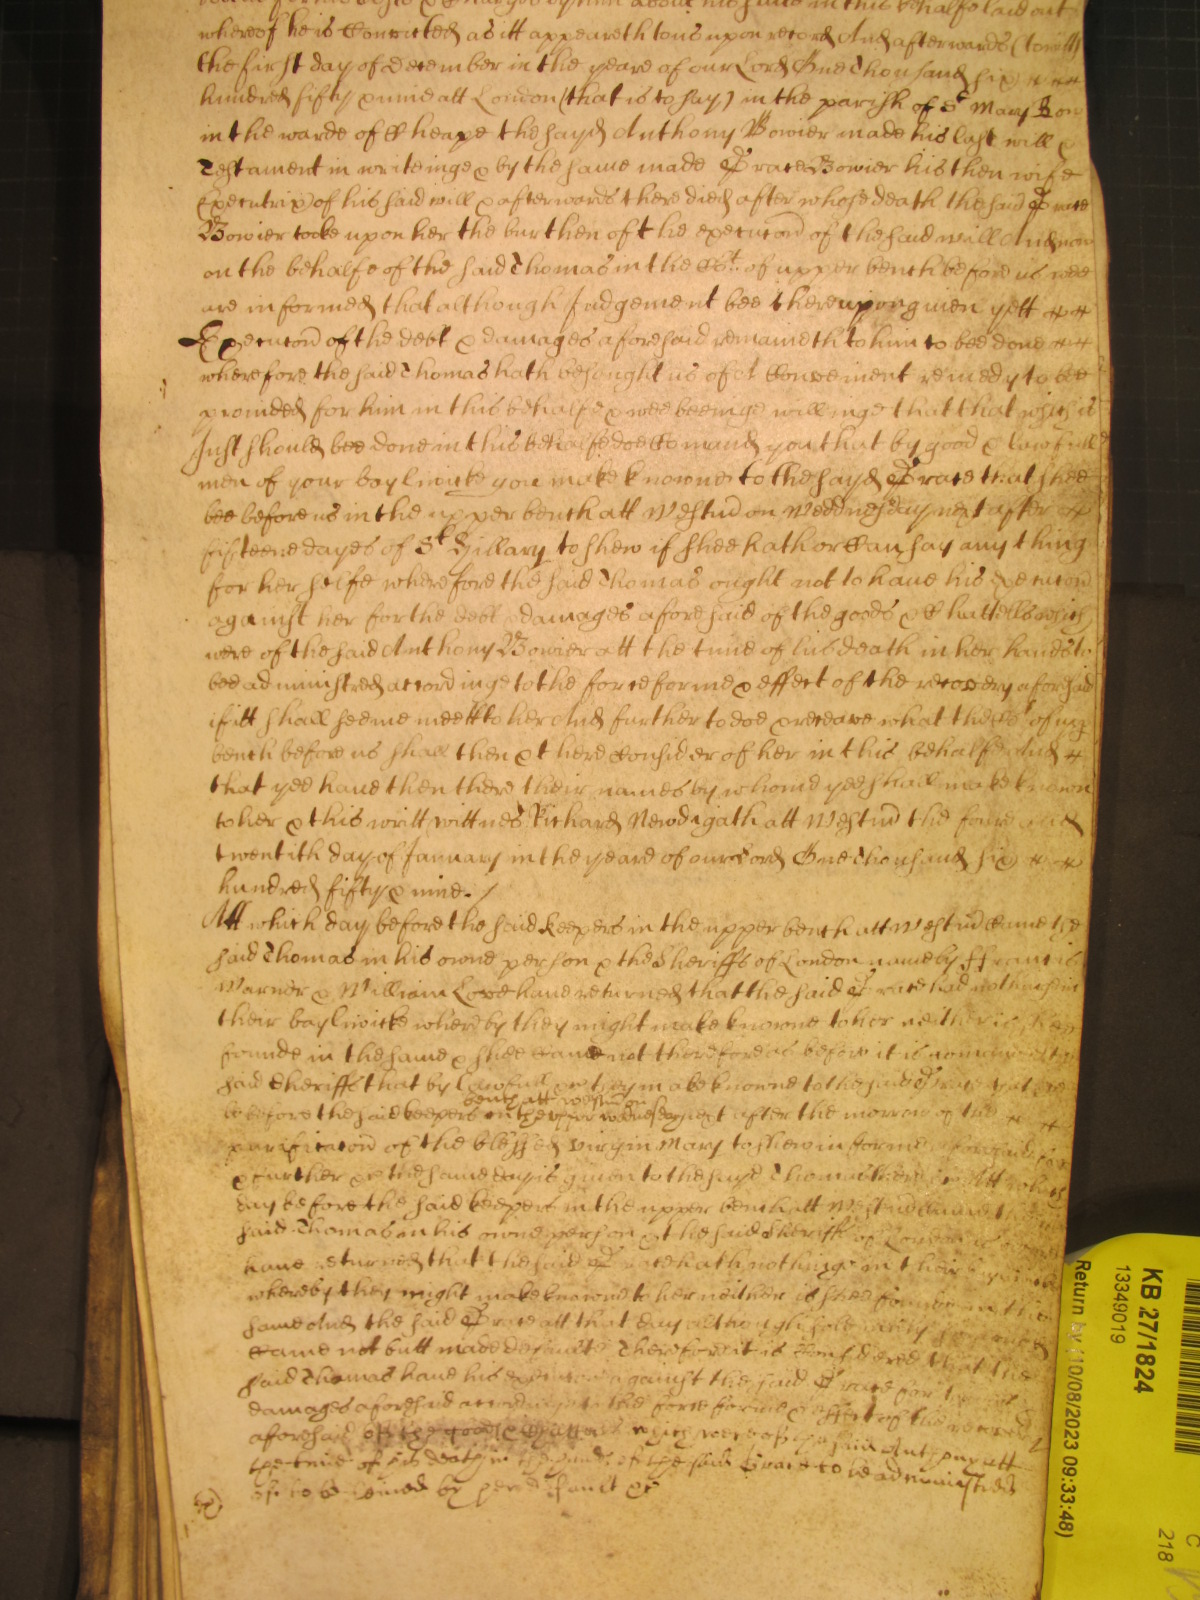 whereof he is Convicted as itt appeareth to us upon record And afterwards (to witt)
the first day of december in the yeare of our Lord One Thousand six
hundred fifty & nine att London (that is to say) in the parish of St Mary Bow
in the warde of Cheape the sayd Anthony Bowier made his last will &
Testament in writeinge & by the same made Grace Bowier his then wife
Executrix of his said will & afterwards there died after whose death the said Grace
Bowier tooke upon her the burthen of the execucon of the said will And now
on the behalfe of the said Thomas in the Ct of upper bench before us wee
are informed that although Judgement bee thereupon given yett
Execucon of the debt & damages aforesaid remaineth to him to bee done
wherefore the said Thomas hath besought us of A Convenient remedy to bee
provided for him in this behalfe & wee beeinge willinge that that which is
Just should bee done in this behalfe doe Comand you that by good & lawfull
men of your bayliwicke you make knowne to the sayd Grace that shee
bee before us in the upper bench att Westmr on Wednesday next after
fifteene dayes of St Hillary to shew if shee hath or Can say any thing
for her selfe wherefore the said Thomas ought not to have his execucon
against her for the debt & damages aforesaid of the goods & Chattells which
were of the said Anthony Bowier att the time of his death in her hands to
bee administred accordinge to the force forme & effect of the recovery aforesaid
if itt shall seeme meete to her And further to doe & receave what the Ct of upp
bench before us shall then & there Consider of her in this behalfe And
that yee have then there their names by whome yee shall make knowne
to her & this writt wittnes Richard Newdigath att Westmr the foure and
twentith day of January in the yeare of our Lord One Thousand six
hundred fifty & nine.
Att which day before the said keepers in the upper bench att Westmr Came the
said Thomas in his owne person & the Sheriffs of London namely Ffrancis
Warner & William Love have returned that the said Grace had nothinge in
their bayliwicke whereby they might make knowne to her neither is shee
founde in the same & shee Came not therefore as before it is comanded the
said Sheriffs that by lawfull &c they make knowne to the said Grace that shee
bench att Westmr on
be before the said keepers in the upper wednesday next after the morrow of the
purificacon of the blessed virgin Mary to shew in forme aforesaid if
& further &c the same day is given to the sayd Thomas there &c Att which
day before the said keepers in the upper bench att Westmr Came the
said Thomas in his owne person & the said Sheriffs of London as before
have returned that the said Grace hath nothinge in their bayliwicke
whereby they might make knowne to her neither is shee founde in the
same And the said Grace att that day although solemnly
Came not butt made default Therefore it is Considered that the
said Thomas have his execucon against the said Grace for the
damages aforesaid accordinge to the force forme & effect of the recovery
aforesaid of the goods & Chattells which were of the said Anthony att
the time of his death in the hands of the said Grace to be administred
to be by default &c
KB 27/1824
13349019
Return by (10/08/2023 09:33:48)
C
218